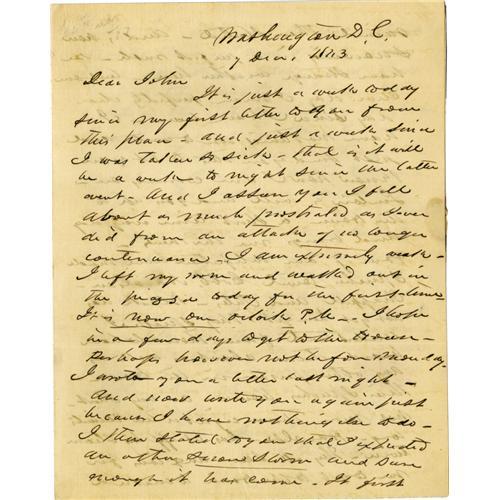 Washington D.C.
7 Dec. 1843
Dear John
It is just a week to day
since my first letter to you from
this place - and just a week since
I was taken so sick - that is it will
be a week to night since the latter
event - And I assure you I feel
about as much prostrated as I ever
did from an attack of no longer
continuance. I am extremely weak -
I left my room and walked out in
the to day for the first time
It is now one oclock P.M. - I hope
in a few days to get to the House -
Perhaps however not before Monday -
I wrote you a letter last night -
And now write you again just
because I have nothing else to do -
I then stated to you that I expected
an other Snow Storm and sure
enough it has come. It first